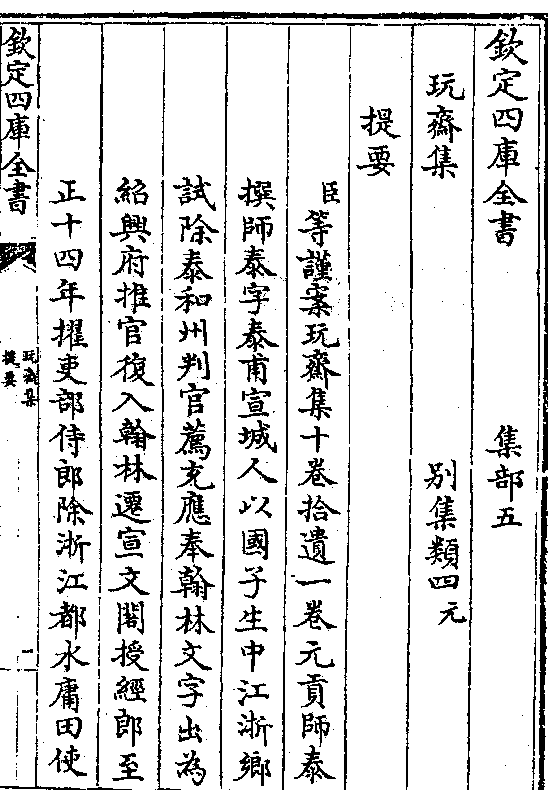 欽定四庫全書　集部五
玩齋集　別集類四元
提要
臣等謹案玩齋集十卷拾遺一卷元貢師泰
撰師泰字泰甫宣城人以國子生中江浙鄉
試除泰和州判官薦充應奉翰林文字出為
紹興府推官復入翰林遷宣文閣授經郎至
正十四年擢吏部侍郎除浙江都水庸田使
欽定四庫全書
玩齋集
提要
一